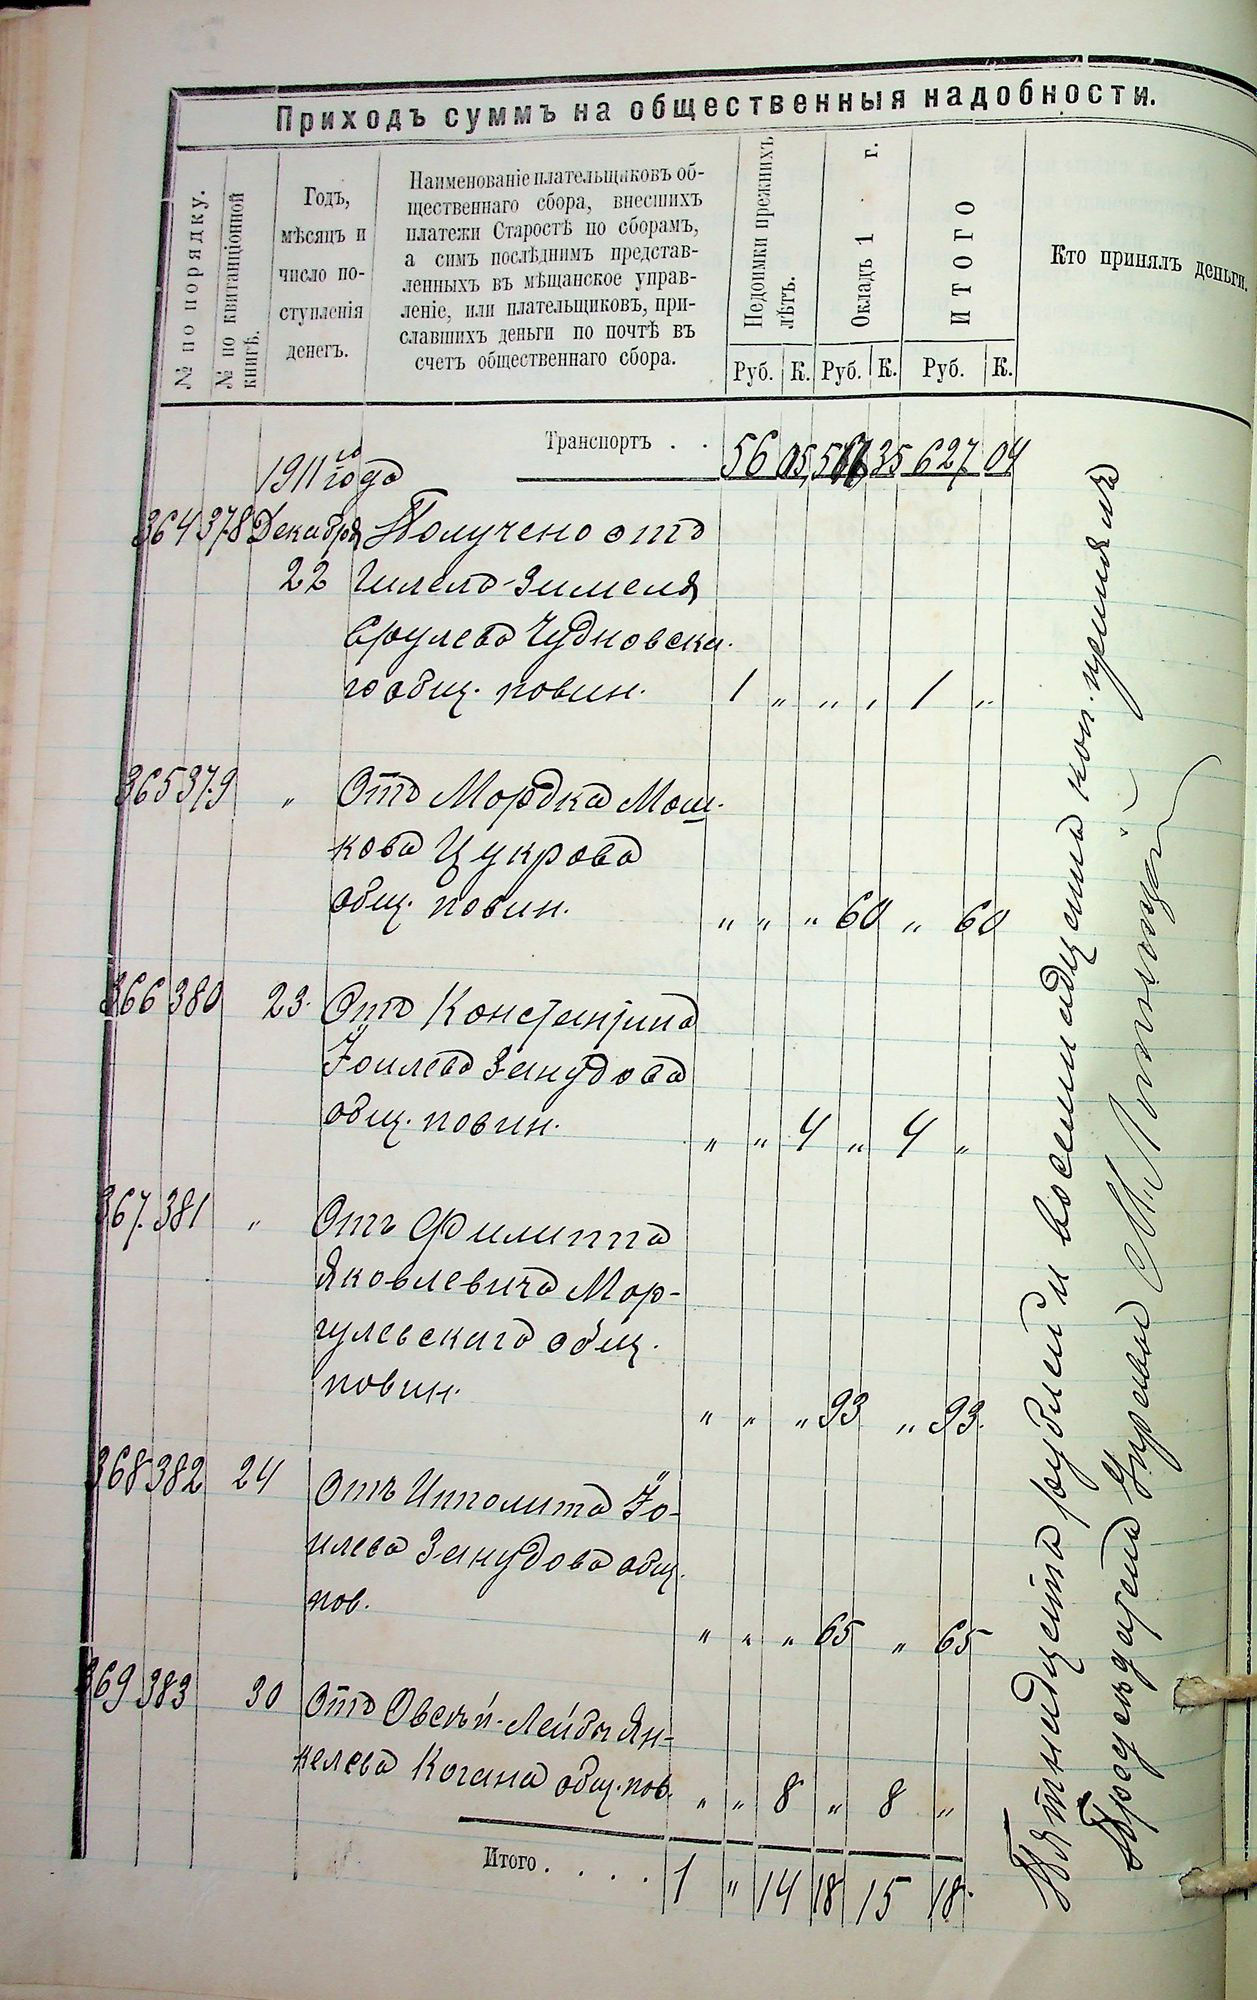 Приходъ суммъ на общественныя надобности.
№ по порядку.
№ по квитанціонной
книгѣ.
Годъ,
мѣсяцъ и
число по-
ступленія
денегъ.
Наименованіе плательщиковъ об-
щественнаго сбора, внесшихъ
платежи Старостѣ по сборамъ,
а симъ послѣднимъ представ-
ленныхъ въ мѣщанское управ-
леніе, или плательщиковъ, при-
славшихъ деньги по почтѣ въ
счетъ общественнаго сбора.
Недоимки прежнихъ
лѣтъ.
Окладъ 1 г.
ИТОГО
Кто принялъ деньги.
Руб. К. Руб. К. Руб. К.
Транспортъ . . 56 05 35 627 04
1911 го года
364 378 Декабря Получено отъ
22 Гилелъ-Зимеля
Срулева Чудновска-
го общ. повин. 1 „ „ „ 1 „
365 379 „ Отъ Мордка Мош-
кова Цукрова
общ. повин. „ „ „ 60 „ 60
366 380 23. Отъ Константина
Іоилева Занудова
общ. повин. „ „ 4 „ 4 „
367. 381 „ Отъ Филиппа
Яковлевича Мор-
гулевскаго общ.
повин. „ „ „ 93 „ 93.
368 382 24 Отъ Ипполита Іо-
илева Занудова общ.
пов. „ „ „ 65 „ 65
369 383 30 Отъ Овсѣй-Лейбы Ян-
келева Когана общ. пов. „ „ 8 „ 8 „
Итого . . . . 1 „ 14 18 15 18.
Пятнадцать рублей и восемнадцать коп. принялъ
Предсѣдатель Управы